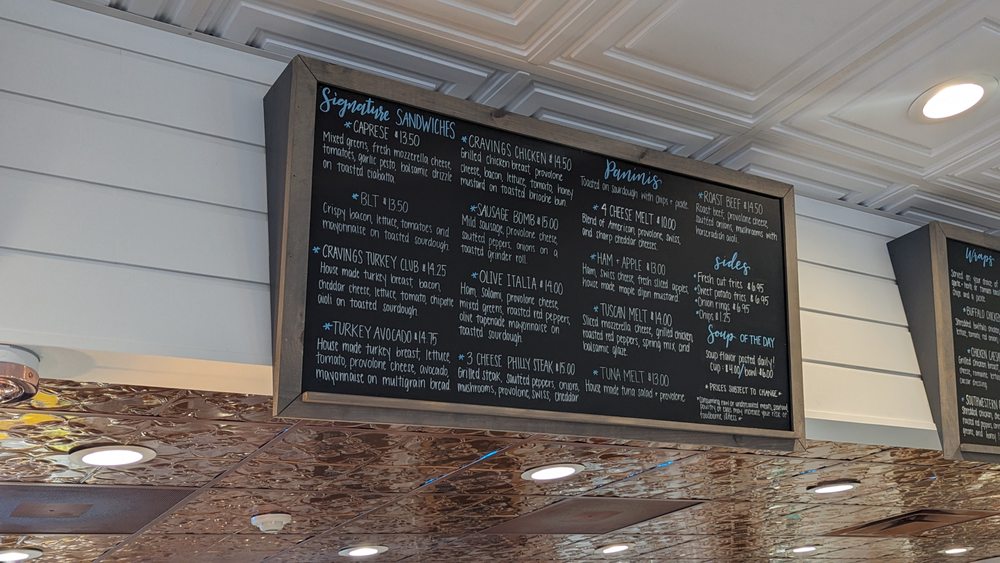 Signature SANDWICHES
*CAPRESE $13.50
Mixed greens, fresh mozzerella cheese,
tomatoes, garlic pesto, balsamic drizzle
on toasted ciabatta.
*BLT $13.50
Crispy bacon, lettuce, tomatoes and
mayonnaise on toasted sourdough.
*CRAVINGS TURKEY CLUB $14.25
House made turkey breast, bacon,
cheddar cheese, lettuce, tomato, chipotle
aioli on toasted sourdough.
*TURKEY AVOCADO $14.75
House made turkey breast, lettuce,
tomato, provolone cheese, avocado,
mayonnaise on multigrain bread
*CRAVINGS CHICKEN $14.50
Grilled chicken breast, provolone
cheese, bacon, lettuce, tomato, honey
mustard on toasted brioche bun.
*SAUSAGE BOMB $15.00
Mild sausage, provolone cheese,
sautéed peppers, onions on a
toasted grinder roll.
*OLIVE ITALIA $14.00
Ham, salami, provolone cheese,
mixed greens, roasted red peppers,
olive tapenade mayonnaise on
toasted sourdough.
*3 CHEESE PHILLY STEAK $15.00
Grilled steak, sautéed peppers, onions,
mushrooms, provolone, swiss, cheddar
Paninis
Toasted on sourdough with chips + pickle
*4 CHEESE MELT $10.00
Blend of American, provolone, swiss,
and sharp cheddar cheeses.
*HAM + APPLE $13.00
Ham, swiss cheese, fresh sliced apples,
house made maple dijon mustard
*TUSCAN MELT $14.00
Sliced mozzarella cheese, grilled chicken,
roasted red peppers, spring mix, and
balsamic glaze.
*TUNA MELT $13.00
House made tuna salad + provolone
*ROAST BEEF $14.50
Roast beef, provolone cheese,
sautéed onions, mushrooms with
horseradish aioli.
sides
*Fresh cut fries $6.95
*Sweet potato fries $6.95
*Onion rings $6.95
*Chips $1.25
Soup OF THE DAY
Soup flavor posted daily!
cup $4.00/bowl $6.00
*PRICES SUBJECT TO CHANGE*
*Consuming raw or undercooked meats, seafood,
poultry, or eggs may increase your risk of
foodborne illness.*
Wraps
*BUFFALO
*CHICKEN
*SOUTHWESTERN